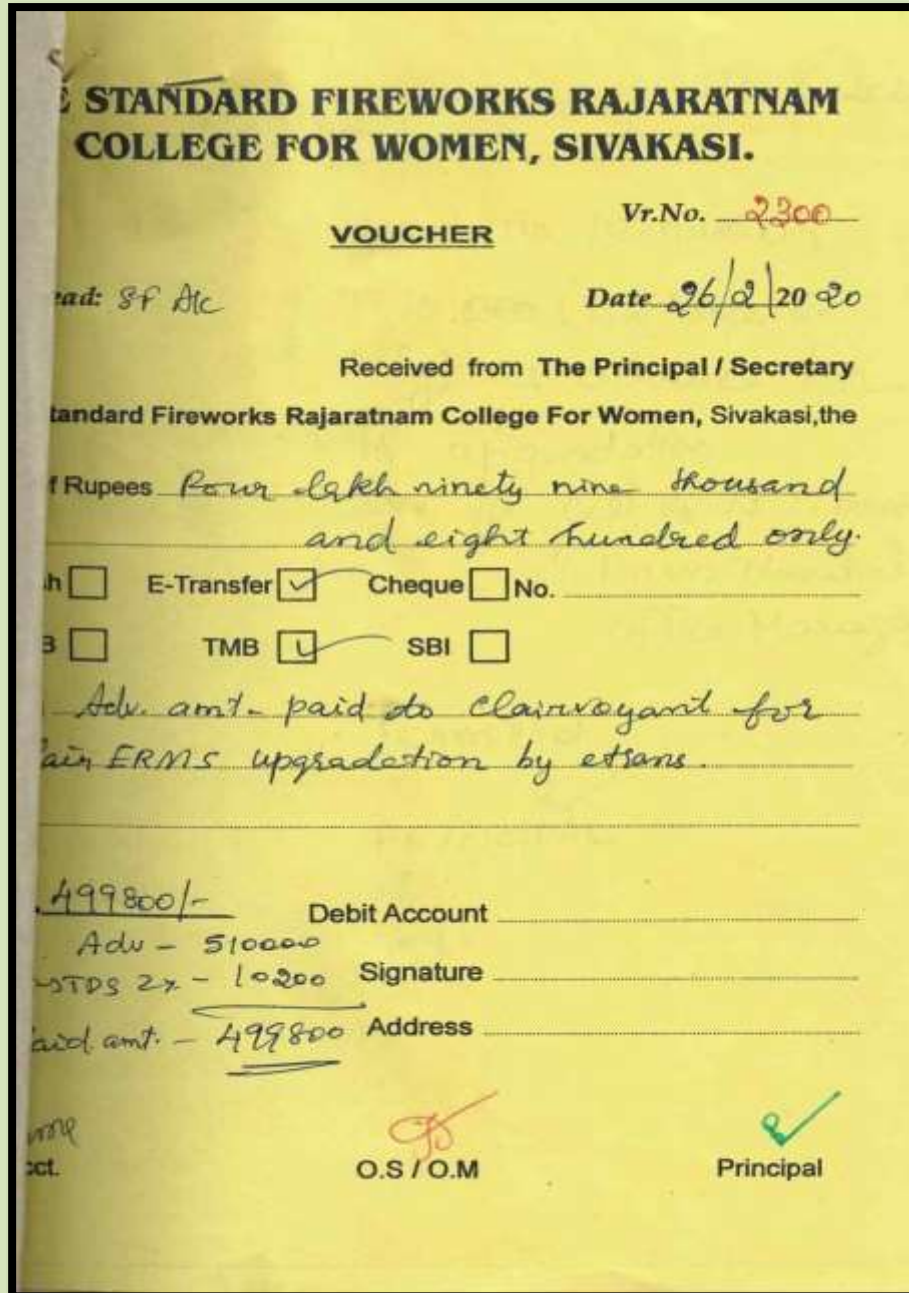 E STANDARD FIREWORKS RAJARATNAM
COLLEGE FOR WOMEN, SIVAKASI.
Vr.No. 2300
VOUCHER
ead: SF A/c Date 26/2/2020
Received from The Principal / Secretary
tandard Fireworks Rajaratnam College For Women, Sivakasi,the
f Rupees Four lakh ninety nine thousand
and eight hundred only.
h E-Transfer ✓ Cheque No.
B TMB ✓ SBI
Adv. amt. paid to Clairvoyant for
ERMS upgradation by etrans.
499800/-
Debit Account
Adv - 510000
TDS 2% - 10200 Signature
aid amt. - 499800 Address
cct. O.S / O.M Principal